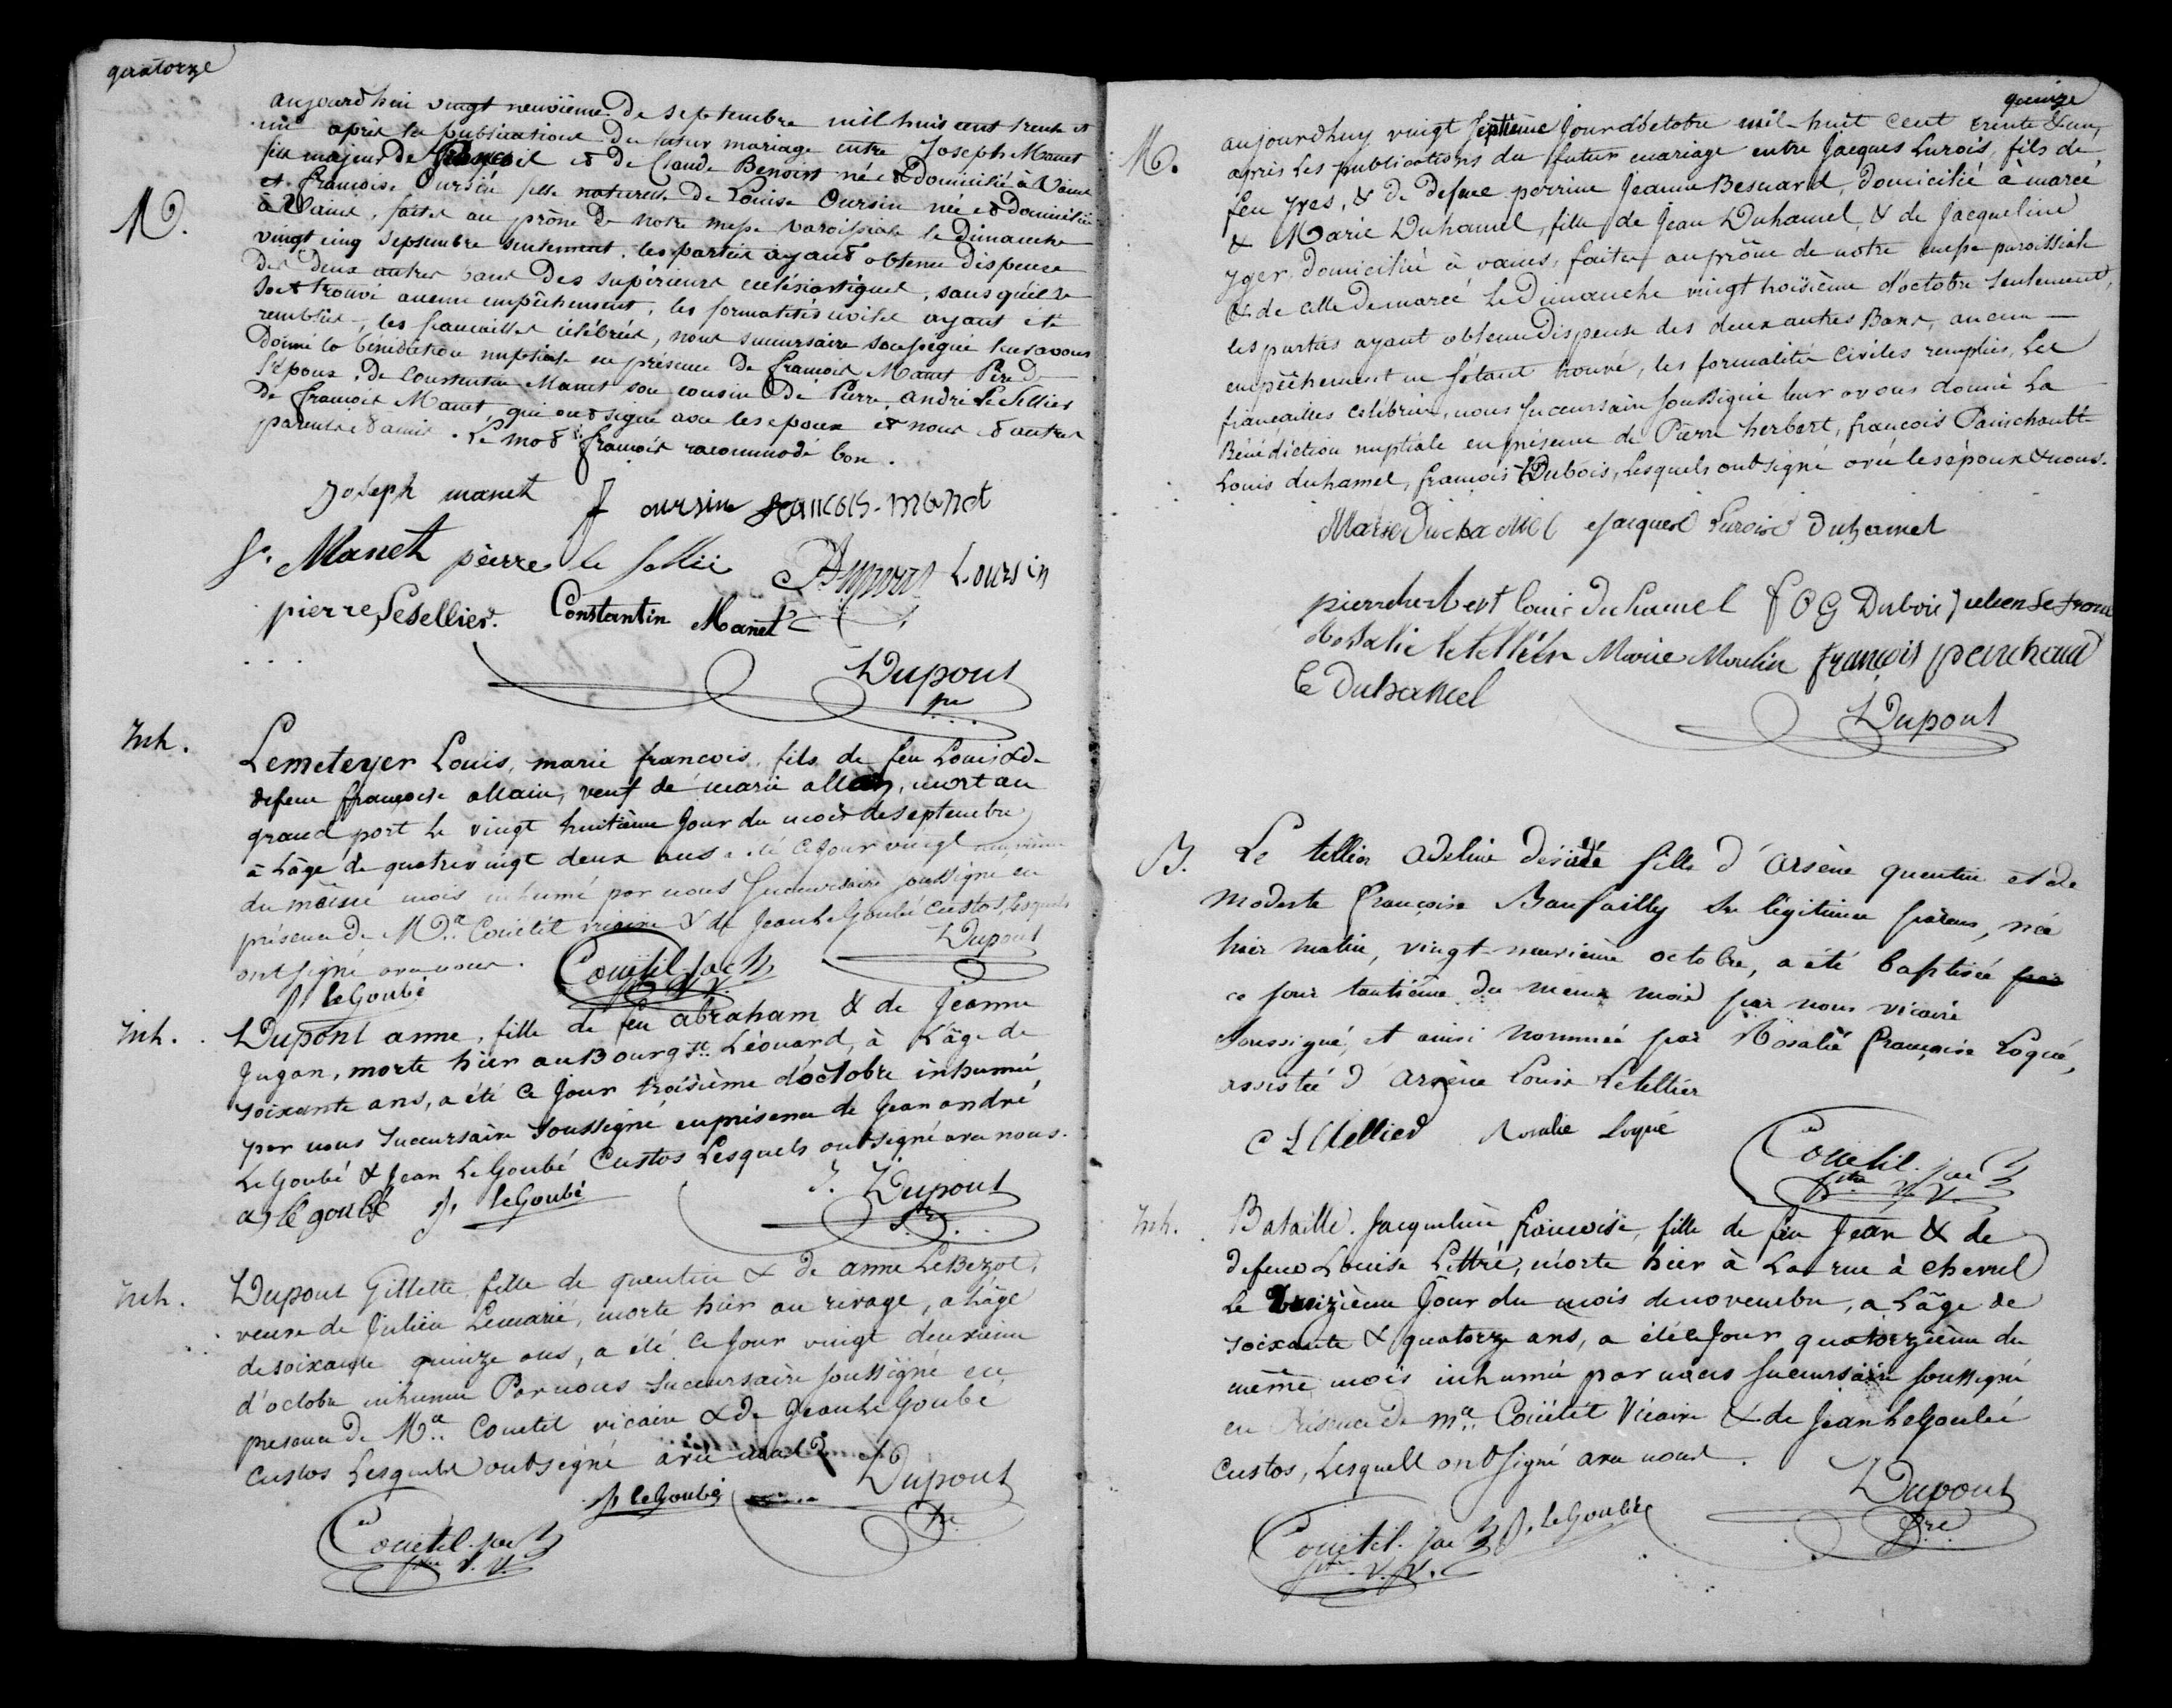 quatorze
M.
aujourd'hui vingt neuvième de septembre mil huit cent trente et
un après la publication du futur mariage entre Joseph Manet
fils majeur de françois et de Claude Benoist né et domicilié à Vains
et françoise Oursin fille naturelle de Louise Oursin née et domiciliée
à Vains, faites au prône de notre messe paroissiale le dimanche
vingt cinq septembre seulement. les parties ayant obtenu dispense
des deux autres bans des supérieurs ecclésiastiques, sans qu'il se
soit trouvé aucun empêchement, les formalités civiles ayant été
remplies, les fiançailles célébrées, nous succursaire soussigné leur avons
donné la bénédiction nuptiale en présence de françois Manet Père de
l'époux, de Constantin Manet son cousin de Pierre, andré Le Tellier
de françois Manet, qui ont signé avec les epoux et nous et autres
parents et amis. Le mot françois racommodé bon.
Joseph manet f oursin francois-manet
fs. Manet pierre le sellié L. oursin
pierre Lesellier. Constantin Manet
Dupont
pre
Inh.
Lemeteyer Louis, marie françois, fils de feu Louis & de
defeue françoise allain, veuf de marie allain, mort au
grand port le vingt huitième jour du mois de septembre
à L'âge de quatrevingt deux ans a été ce jour vingt neuvième
du même mois inhumé par nous succursaire soussigné en
présence de Mr. Couëtil vicaire & de Jean Le Goubé Custos, Lesquels
ont signé avec nous.
Dupont
J leGoubé
Couëtil
Inh.
Dupont anne, fille de feu abraham & de Jeanne
Jugan, morte hier au Bourg St. Léonard, à L'âge de
soixante ans, a été ce jour troisième d'octobre inhumé
par nous succursaire soussigné en présence de Jean andré
LeGoubé & Jean LeGoubé Custos Lesquels ont signé avec nous.
a, le goubé J, leGoubé J. Dupont
Inh.
Dupont Gillette fille de quentin & de anne LeBezot,
veuve de Julien Lemarié, morte hier au rivage, a L'âge
de soixante quinze ans, a été ce jour vingt deuxième
d'octobre inhumée Par nous succursaire soussigné en
presence de Mr. Couetil vicaire & de Jean LeGoubé
Custos Lesquels ont signé avec nous
J leGoubé
Dupont
Pre
Couetil
quinze
M.
aujourdhuy vingt septième jour d'octobre mil-huit cent trente & un,
après Les publications du futur mariage entre Jacques Lurois, fils de
feu yves, & de defeue perrine Jeanne Besnard, domicilié à marcé
& Marie Duhamel, fille de Jean Duhamel & de Jacqueline
yger, domiciliée à vains, faites au prône de notre messe paroissiale
& de celle de marcé Le Dimanche vingt troisième d'octobre seulement,
les parties ayant obtenu Dispense des deux autres Bans, aucun
empêchement ne s'étant trouvé, les formalité civiles remplies, Les
fiançailles célébrées, nous succursaire soussigné leur avons donné La
Bénédiction nuptiale en présence de Pierre herbert, françois Painchault
Louis duhamel, françois Dubois, Lesquels ont signé avec les époux & nous.
Marie Duhamel Jacques Lurois Duhamel
pierre herbert louis duhamel f O G Dubois Julien Le
Rosalie letellier Marie Moulin françois penchaud
Duhamel
Dupont
B.
Le tellier adeline désirée fille d'arsène quentin et de
modeste françoise Banfailly ses légitimes pareus, née
hier matin, vingt-neuvième octobre, a été baptisée par
ce jour tantième du meme mois par nous vicaire
soussigné, et ainsi nommée par Rosalie françoise Loqué,
assistée d'arsène Louis Letellier
Rosalie Loqué
Couetil
Inh.
Bataille. Jacqueline françoise, fille de feu Jean & de
defeue Louise Lettré, morte hier à La rue à cheval
Le treizième Jour du mois de novembre, a L'âge de
soixante & quatorze ans, a été ce Jour quatorzième du
même mois inhumé par nous succursaire soussigné
en Présence de mr. Couëtil Vicaire & de Jean LeGoubé
Custos, Lesquels ont signé avec nous.
Dupont
Pre
Couetil
J. leGoubé